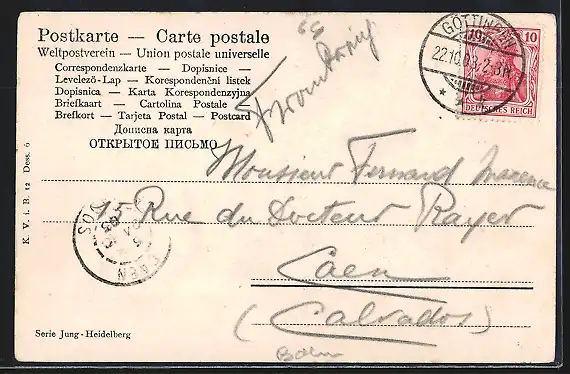 Postkarte — Carte postale
Weltpostverein — Union postale universelle
Correspondenzkarte — Dopisnice —
Levelező-Lap — Korespondenční listek
Dopisnica — Karta Korespondenzyjna
Briefkaart — Cartolina Postale
Brefkort — Tarjeta Postal — Postcard
Дописна карта
ОТКРЫТОЕ ПИСЬМО
GÖTTINGEN
10
DEUTSCHES REICH
Monsieur Fernand
15 Rue du Docteur Rayer
Caen
(Calvados)
CAEN
K. V. i. B. 12 Dess. 6
Serie Jung-Heidelberg